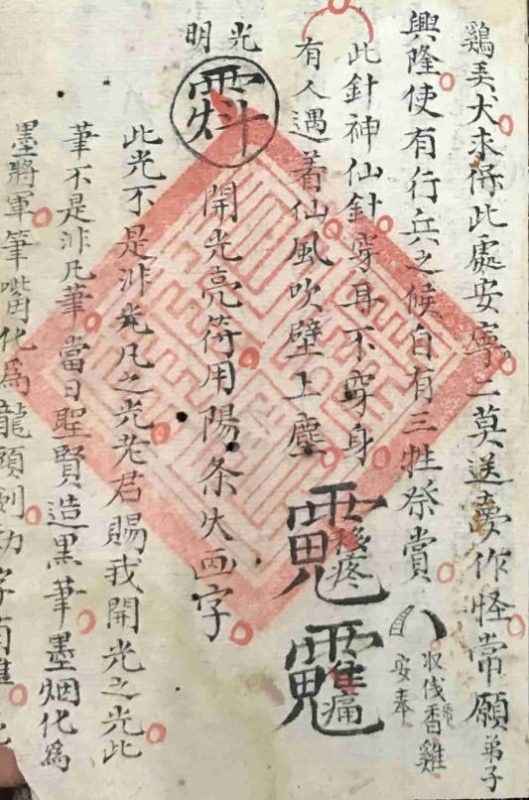 鷄犬求保此處安寧二莫送賣作怪常願弟子
興隆使有行兵之候自有三牲祭賞
香雞
安奉
此針神仙針穿耳不穿身
有人遇着仙風吹壁上塵
疼
痛
光明
開光亮符用陽条火画字
此光不是非光凡之光老君賜我開光之光此
筆不是非凡筆當日聖賢造黑筆墨烟化爲
墨將軍筆嘴化爲龍頭劍